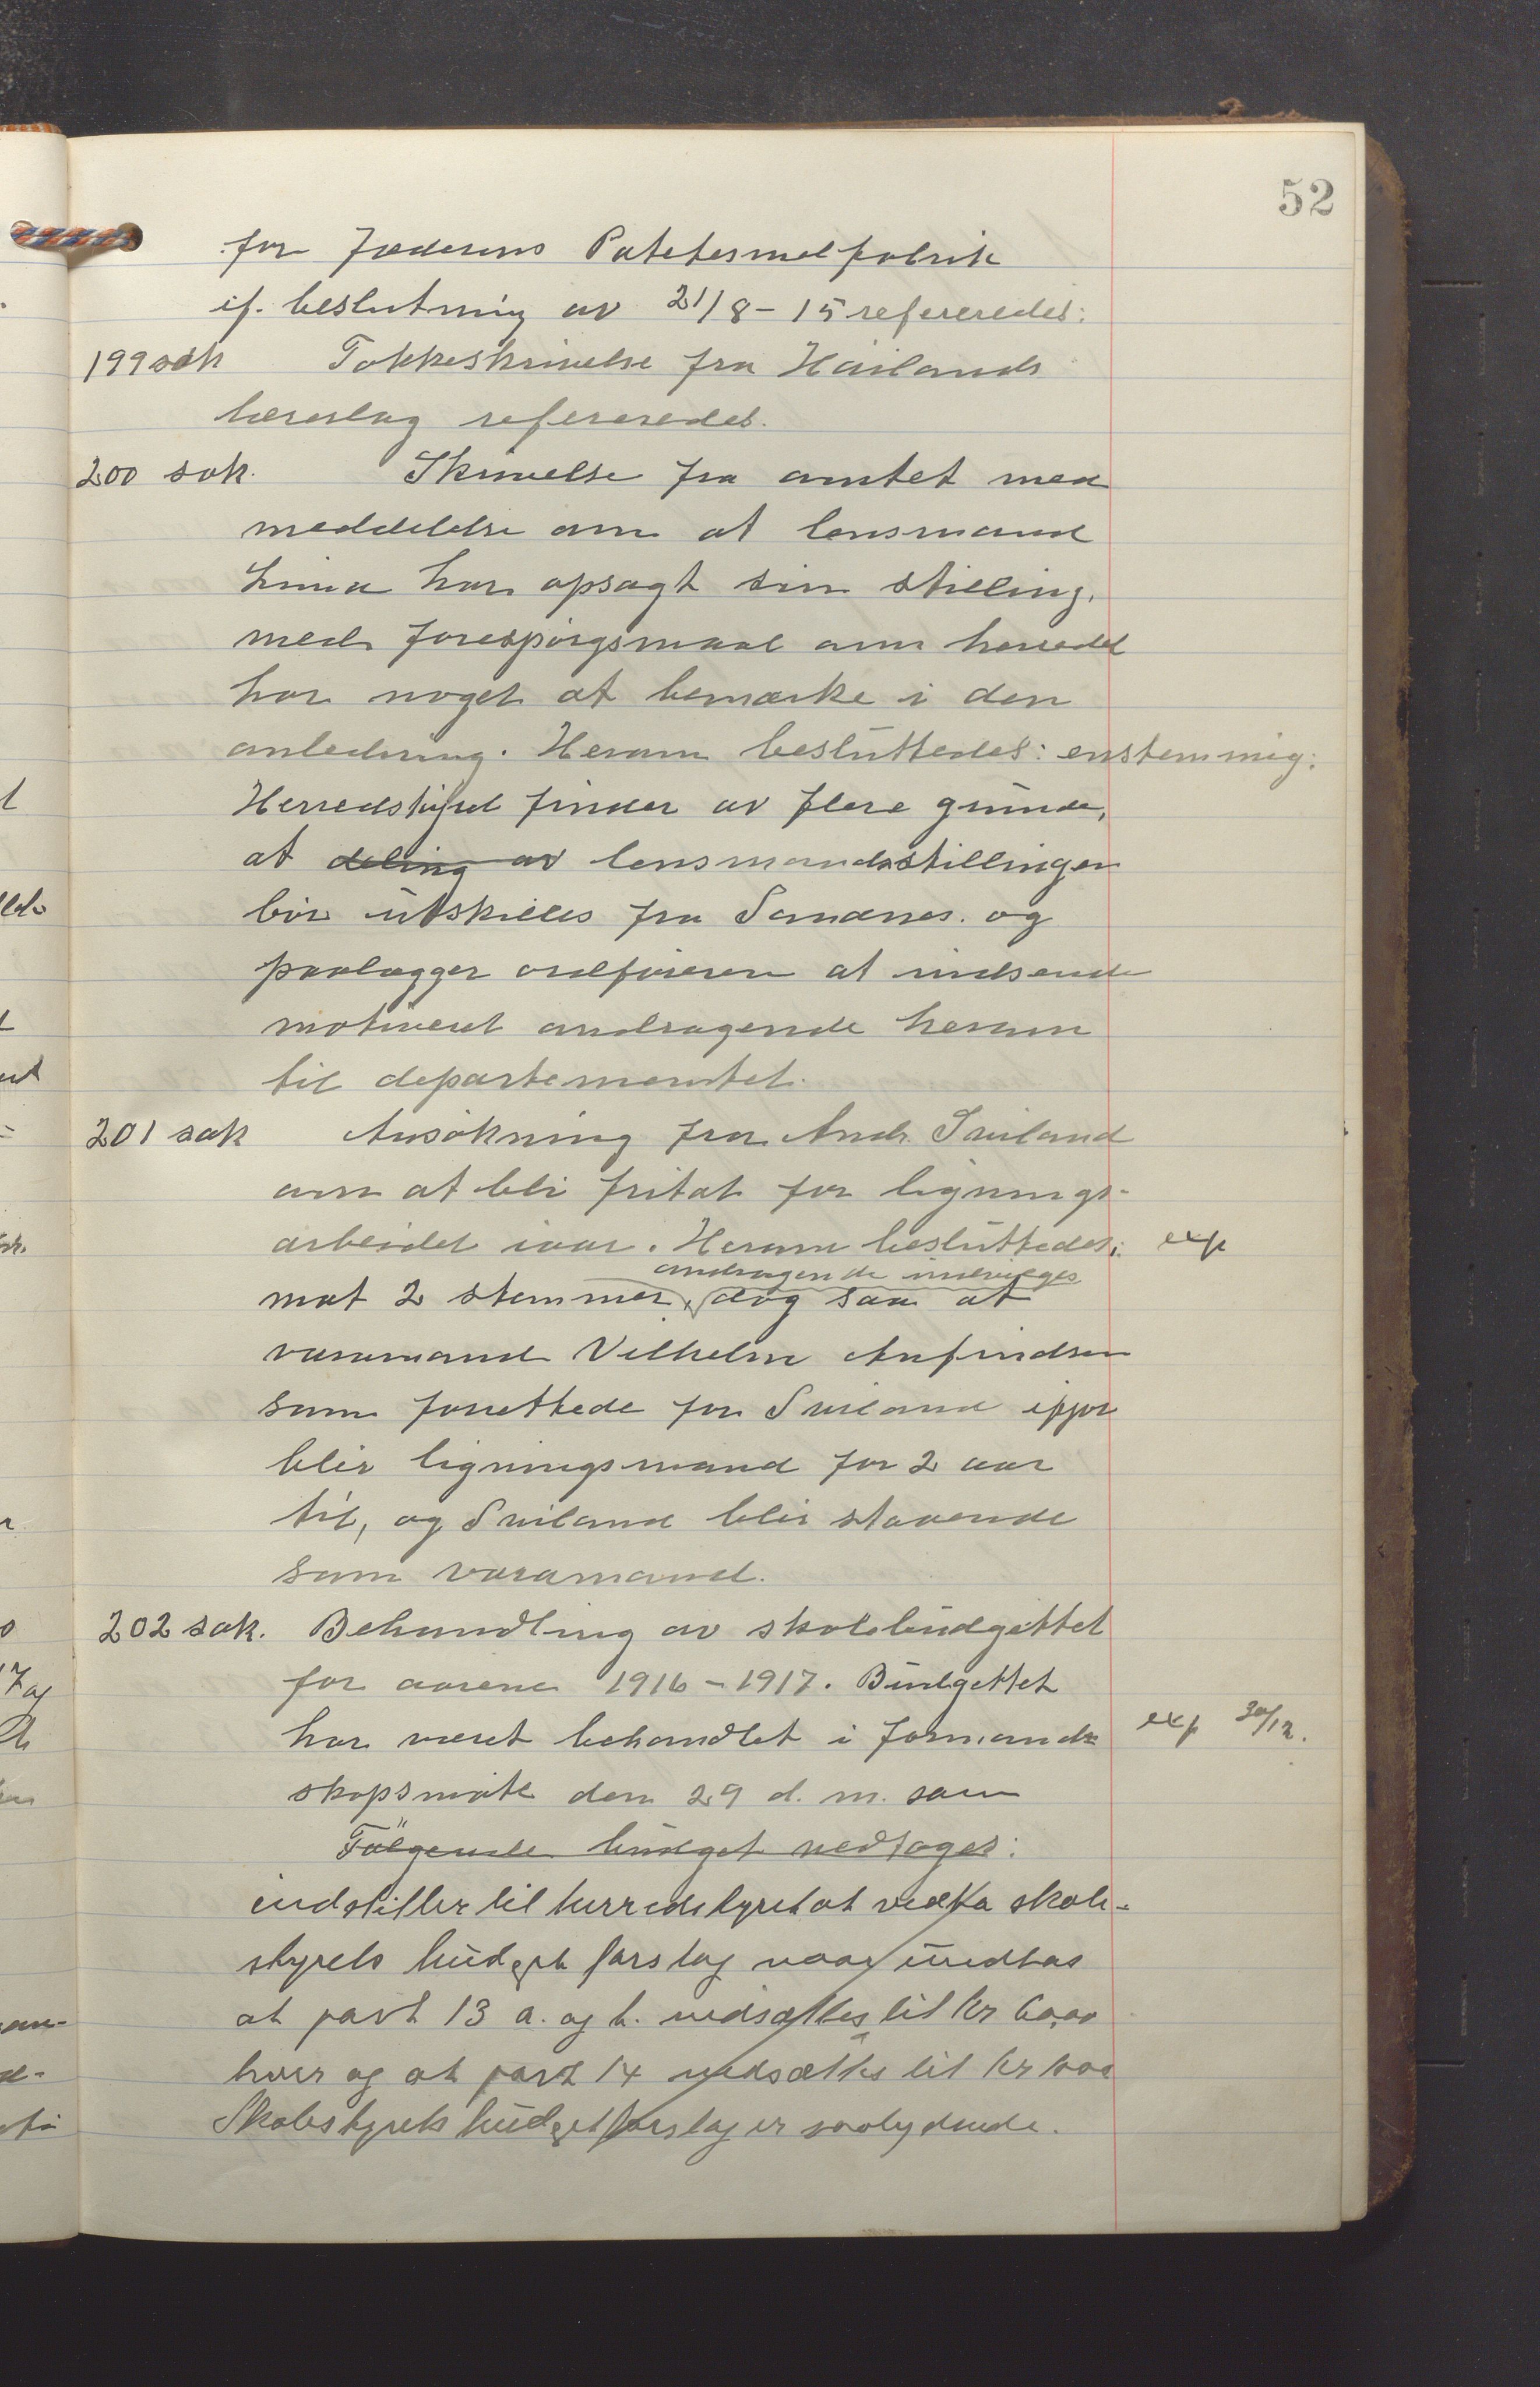 52
for Jæderens Potetesmelfabrik
if. beslutning av 21/8-15 refereredes:
199 sak Takkeskrivelse fra Håilands
lærerlag refereredes.
200 sak. Skrivelse fra amtet med
meddelelse om at lensmand
Lima har opsagt sin stilling,
med forespörgsmaal om herredet
har noget at bemærke i den
anledning. Herom besluttedes: enstemmig:
Herredstyret finder av flere grunde,
at deling av lensmandsstillingen
bör utskilles fra Sandnes. og
paalægger ordföreren at indsende
motiveret andragende herom
til departementet.
201 sak Ansökning fra Andr. Sviland
om at bli fritat for lignings-
arbeidet iaar. Herom besluttedes: exp
andragende indvilges
mot 2 stemmer, dog saa at
varamand Vilhelm Anfindsen
som forrettede for Sviland ifjor
blir ligningsmand for 2 aar
til, og Sviland blir staaende
som varamand.
202 sak. Behandling av skolebudgettet
for aarene 1916-1917. Budgettet
har været behandlet i formand- exp 30/12.
skapsmöte den 29 d. m. som
Fölgende budget vedtages:
indstiller til herredstyret at vedta skole-
styrets budget forslag naar undtas
at post 13 a. og b. nedsættes til kr 60,00
hver og at post 14 nedsættes til kr
Skolestyrets budgetforslag er saalydende.